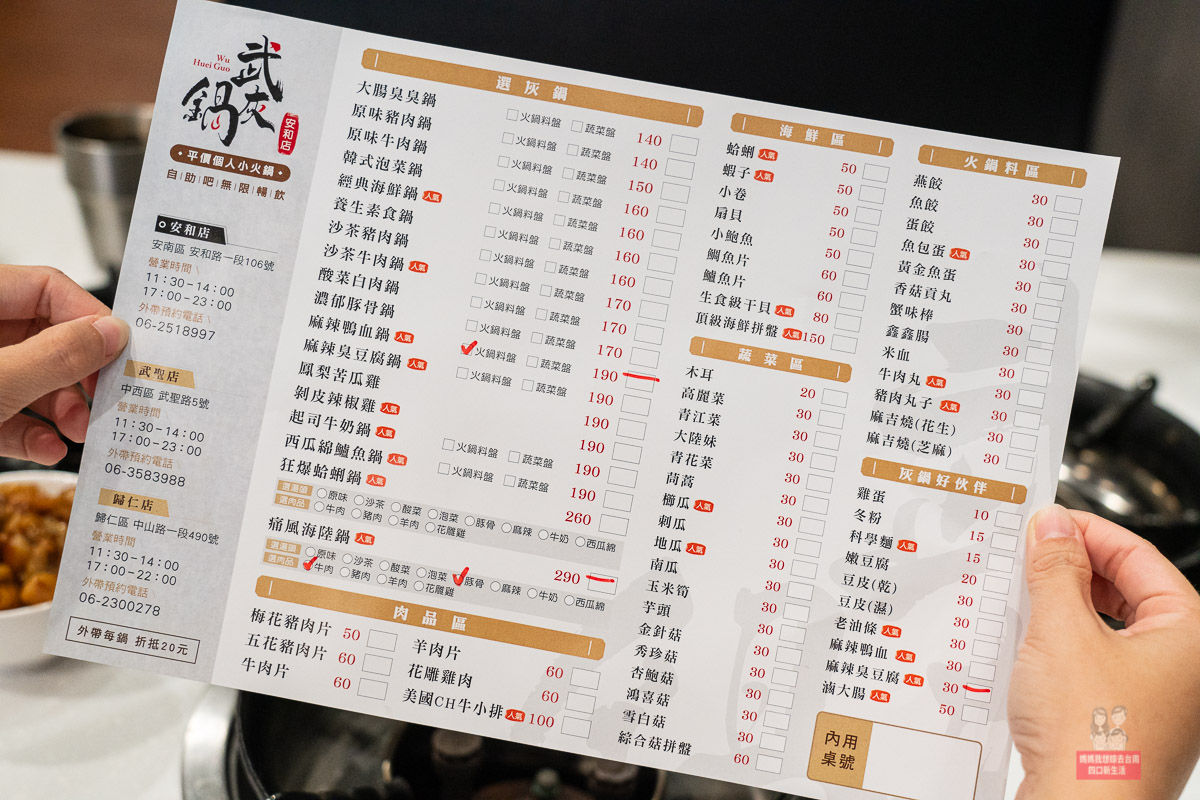 武灰鍋
Wu
Huei Guo
安和店
平價個人小火鍋
自助吧無限暢飲
安和店
安南區 安和路一段106號
營業時間
11:30-14:00
17:00-23:00
外帶預約電話
06-2518997
武聖店
中西區 武聖路5號
營業時間
11:30-14:00
17:00-23:00
外帶預約電話
06-3583988
歸仁店
歸仁區 中山路一段490號
營業時間
11:30-14:00
17:00-22:00
外帶預約電話
06-2300278
外帶每鍋 折抵20元
選灰鍋
大腸臭臭鍋 火鍋料盤 蔬菜盤 140
原味豬肉鍋 火鍋料盤 蔬菜盤 140
原味牛肉鍋 火鍋料盤 蔬菜盤 150
韓式泡菜鍋 火鍋料盤 蔬菜盤 160
經典海鮮鍋 人氣 火鍋料盤 蔬菜盤 160
養生素食鍋 火鍋料盤 蔬菜盤 160
沙茶豬肉鍋 火鍋料盤 蔬菜盤 160
沙茶牛肉鍋 人氣 火鍋料盤 蔬菜盤 170
酸菜白肉鍋 火鍋料盤 蔬菜盤 170
濃郁豚骨鍋 火鍋料盤 蔬菜盤 170
麻辣鴨血鍋 人氣 火鍋料盤 蔬菜盤 190
麻辣臭豆腐鍋 人氣 火鍋料盤 蔬菜盤 190
鳳梨苦瓜雞 190
剝皮辣椒雞 人氣 190
起司牛奶鍋 人氣 火鍋料盤 蔬菜盤 190
西瓜綿鱸魚鍋 人氣 火鍋料盤 蔬菜盤 190
狂爆蛤蜊鍋 人氣 260
選湯頭 原味 沙茶 酸菜 泡菜 豚骨 麻辣 牛奶 西瓜綿
選肉品 牛肉 豬肉 羊肉 花雕雞
痛風海陸鍋 人氣 290
選湯頭 原味 沙茶 酸菜 泡菜 豚骨 麻辣 牛奶 西瓜綿
選肉品 牛肉 豬肉 羊肉 花雕雞
肉品區
梅花豬肉片 50
五花豬肉片 60
牛肉片 60
羊肉片 60
花雕雞肉 60
美國CH牛小排 人氣 100
海鮮區
蛤蜊 人氣 50
蝦子 人氣 50
小卷 50
扇貝 50
小鮑魚 50
鯛魚片 60
鱸魚片 60
生食級干貝 人氣 80
頂級海鮮拼盤 人氣 150
蔬菜區
木耳 20
高麗菜 30
青江菜 30
大陸妹 30
青花菜 30
茼蒿 30
櫛瓜 人氣 30
刺瓜 30
地瓜 人氣 30
南瓜 30
玉米筍 30
芋頭 30
金針菇 30
秀珍菇 30
杏鮑菇 30
鴻喜菇 30
雪白菇 30
綜合菇拼盤 60
火鍋料區
燕餃 30
魚餃 30
蛋餃 30
魚包蛋 人氣 30
黃金魚蛋 30
香菇貢丸 30
蟹味棒 30
鑫鑫腸 30
米血 30
牛肉丸 人氣 30
豬肉丸子 人氣 30
麻吉燒(花生) 30
麻吉燒(芝麻) 30
灰鍋好伙伴
雞蛋 10
冬粉 15
科學麵 人氣 15
嫩豆腐 20
豆皮(乾) 30
豆皮(濕) 30
老油條 人氣 30
麻辣鴨血 人氣 30
麻辣臭豆腐 人氣 30
滷大腸 人氣 50
內用
桌號
媽媽我想嫁去台南
四口新生活